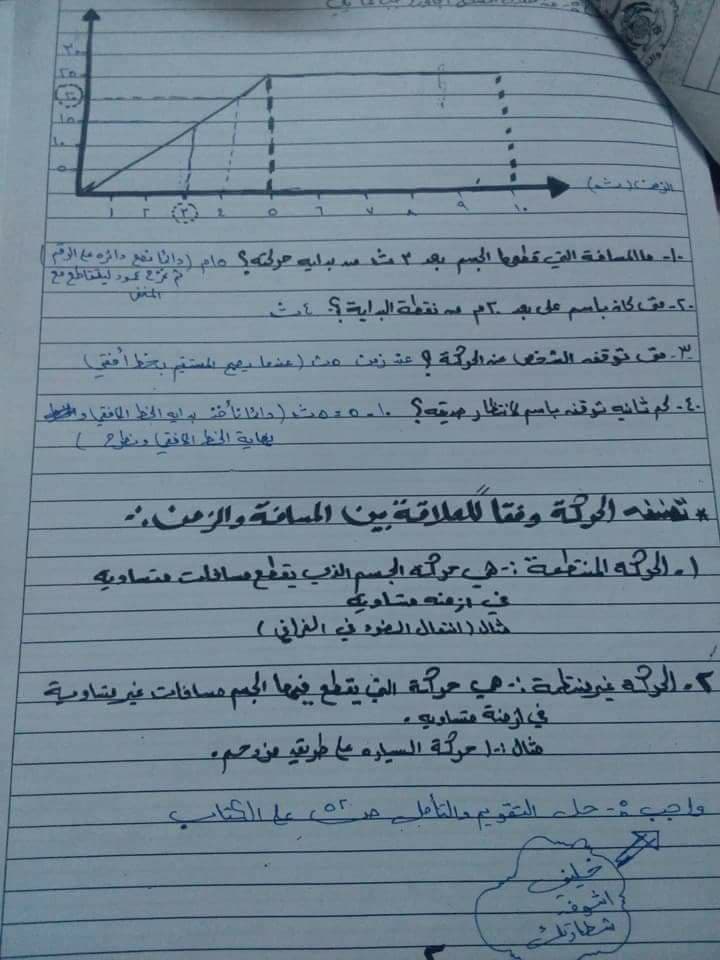 ٣٠
٢٥
١٥
١٠
٥
١ ٢ ٣ ٤ ٥ ٦ ٧ ٨ ٩ ١٠
الزمن (ث)
١- ما المسافة التي قطعها الجسم بعد ٣ ث من بداية حركته؟ ١٥م (دائما نضع دائره على الرقم
ثم نرفع عمود ليتقاطع مع
المنحنى
٢- متى كان باسم على بعد ٢٠م من نقطة البداية؟ ٤ث
٣- متى توقف الشخص عن الحركة؟ عند زمن ٥ث (عندما يصبح المستقيم بخط أفقي)
٤- كم ثانيه توقف باسم لانتظار صديقه؟ ١٠-٥=٥ث (دائما نأخذ بدايه الخط الافقي و
نهاية الخط الافقي ونطرح)
* تصنف الحركة وفقاً للعلاقة بين المسافة والزمن:-
١- الحركه المنتظمة:- هي حركه الجسم الذي يقطع مسافات متساويه
في ازمنه متساويه
مثال (انتقال الضوء في الفراغ)
٢- الحركه غير منتظمة:- هي حركة التي يقطع فيها الجسم مسافات غير متساوية
في ازمنة متساويه.
مثال:- حركة السياره على طريق مزدحم.
واجب:- حل التقويم والتأمل ص ٥٢ على الكتاب
خليني
اشوفة
شطارتك
٣